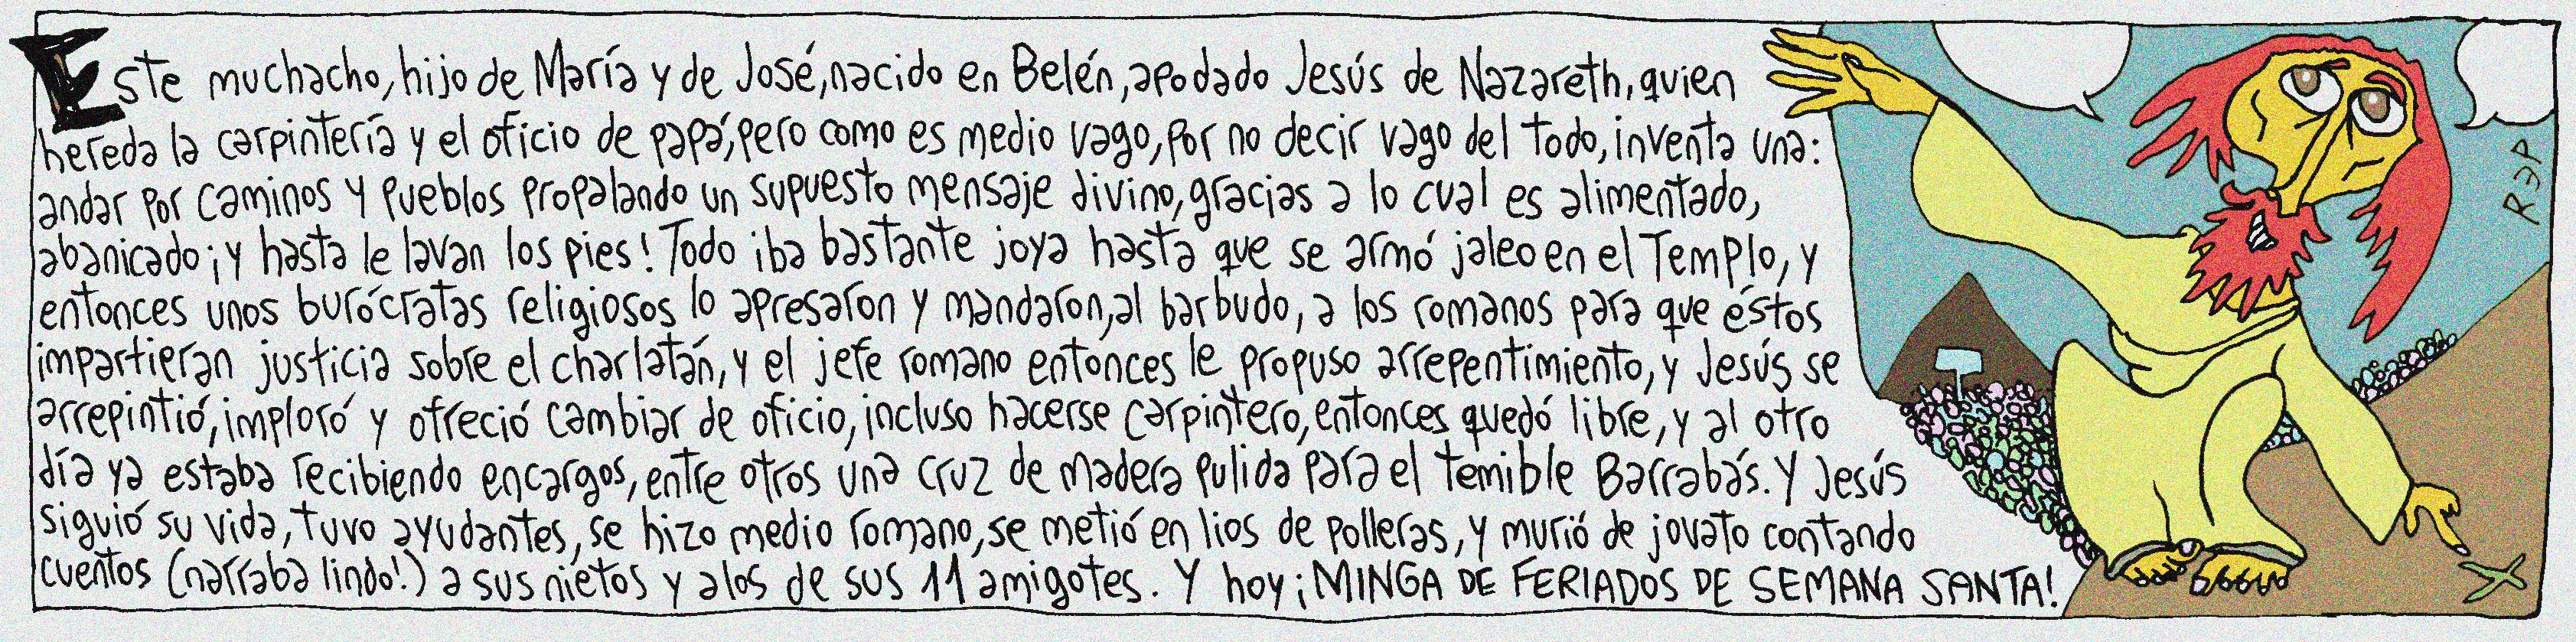 Este muchacho, hijo de María y de José, nacido en Belén, apodado Jesús de Nazareth, quien
hereda la carpintería y el oficio de papá, pero como es medio vago, por no decir vago del todo, inventa una:
andar por caminos y pueblos propalando un supuesto mensaje divino, gracias a lo cual es alimentado,
abanicado ¡y hasta le lavan los pies! Todo iba bastante joya hasta que se armó jaleo en el Templo, y
entonces unos burócratas religiosos lo apresaron y mandaron, al barbudo, a los romanos para que éstos
impartieran justicia sobre el charlatán, y el jefe romano entonces le propuso arrepentimiento, y Jesús se
arrepintió, imploró y ofreció cambiar de oficio, incluso hacerse carpintero, entonces quedó libre, y al otro
día ya estaba recibiendo encargos, entre otros una cruz de madera pulida para el temible Barrabás. Y Jesús
siguió su vida, tuvo ayudantes, se hizo medio romano, se metió en líos de polleras, y murió de jovato contando
cuentos (narraba lindo!) a sus nietos y a los de sus 11 amigotes. Y hoy ¡MINGA DE FERIADOS DE SEMANA SANTA!
REP